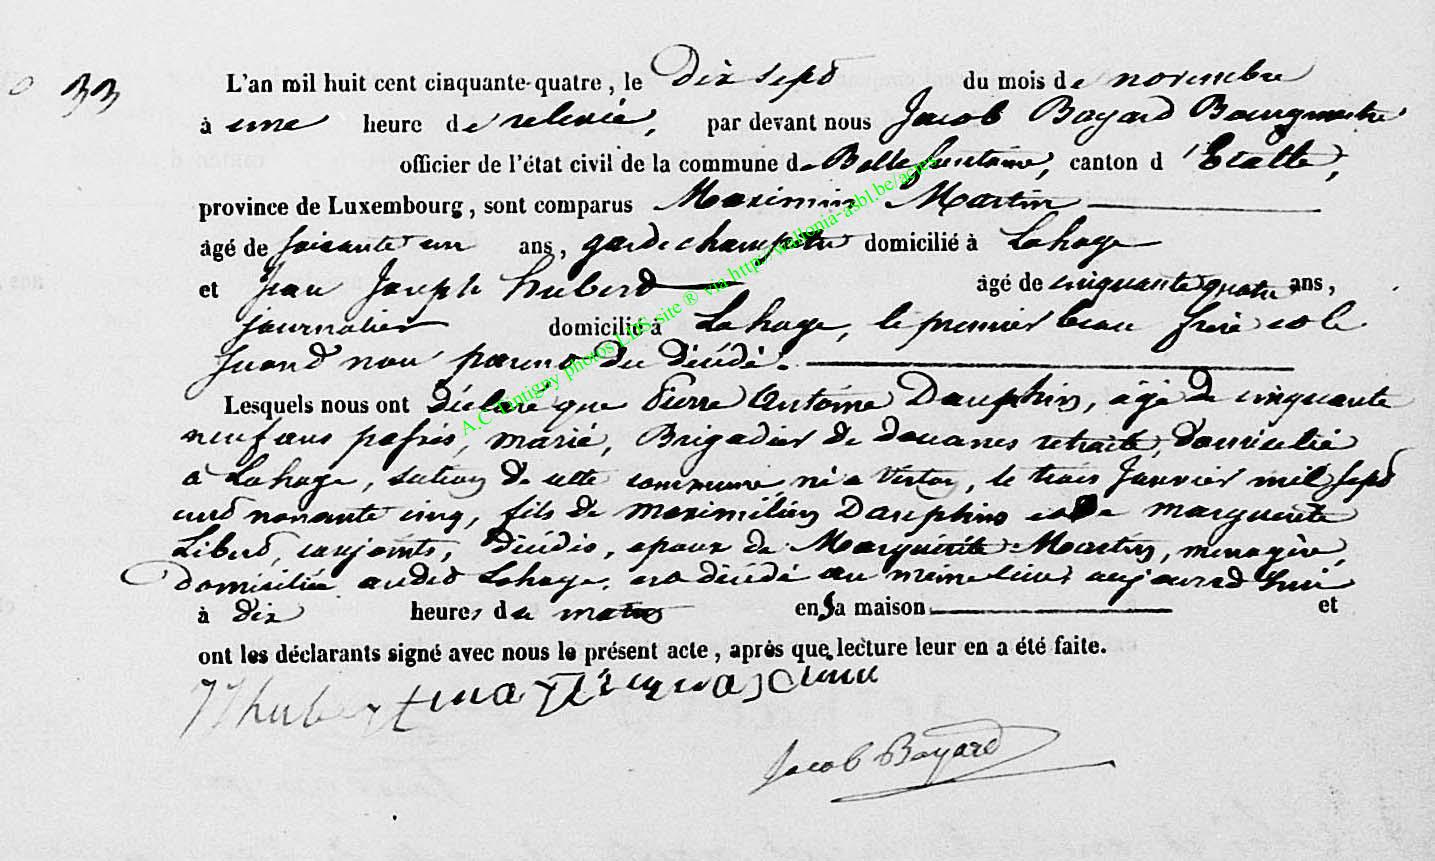 33
L'an mil huit cent cinquante-quatre, le Dix sept du mois de novembre
à une heure de relevée, par devant nous Jacob Bayard Bourgmestre
officier de l'état civil de la commune de Bellefontaine, canton d'Etalle,
province de Luxembourg, sont comparus Maximin Martin
âgé de soisante un ans, garde champetre domicilié à Lahage
et Jean Joseph hubert âgé de cinquante quatre ans,
journalier domicilié à Lahage, le premier beau frère et le
second non parent du décédé.
Lesquels nous ont déclaré que Pierre Antoine Dauphin, âgé de cinquante
neuf ans passés, marié, Brigadier de douanes retraité, domicilié
à Lahage, section de cette commune, né à Virton, le trois Janvier mil sept
cent nonante cinq, fils de Maximilien Dauphin et de marguerite
Libert, conjoints, décédés, epoux de Marguerite Martin, menagère,
domiciliée audit Lahage, est décédé au même lieu aujourd'hui
à dix heures du matin en sa maison et
ont les déclarants signé avec nous le présent acte, après que lecture leur en a été faite.
JJ hubert
Jacob Bayard
A.C Tintigny photos LDS site ® via http://wallonia-asbl.be/actes